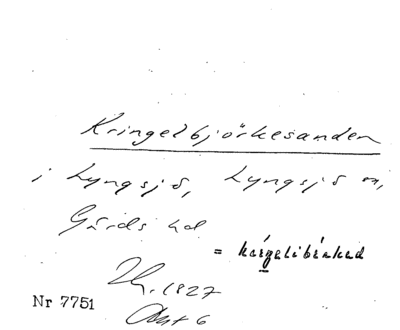 Kringelbjörkesanden
i Lyngsjö, Lyngsjö sn,
Gärds hd
= kärgelibérkad
Nr 7751